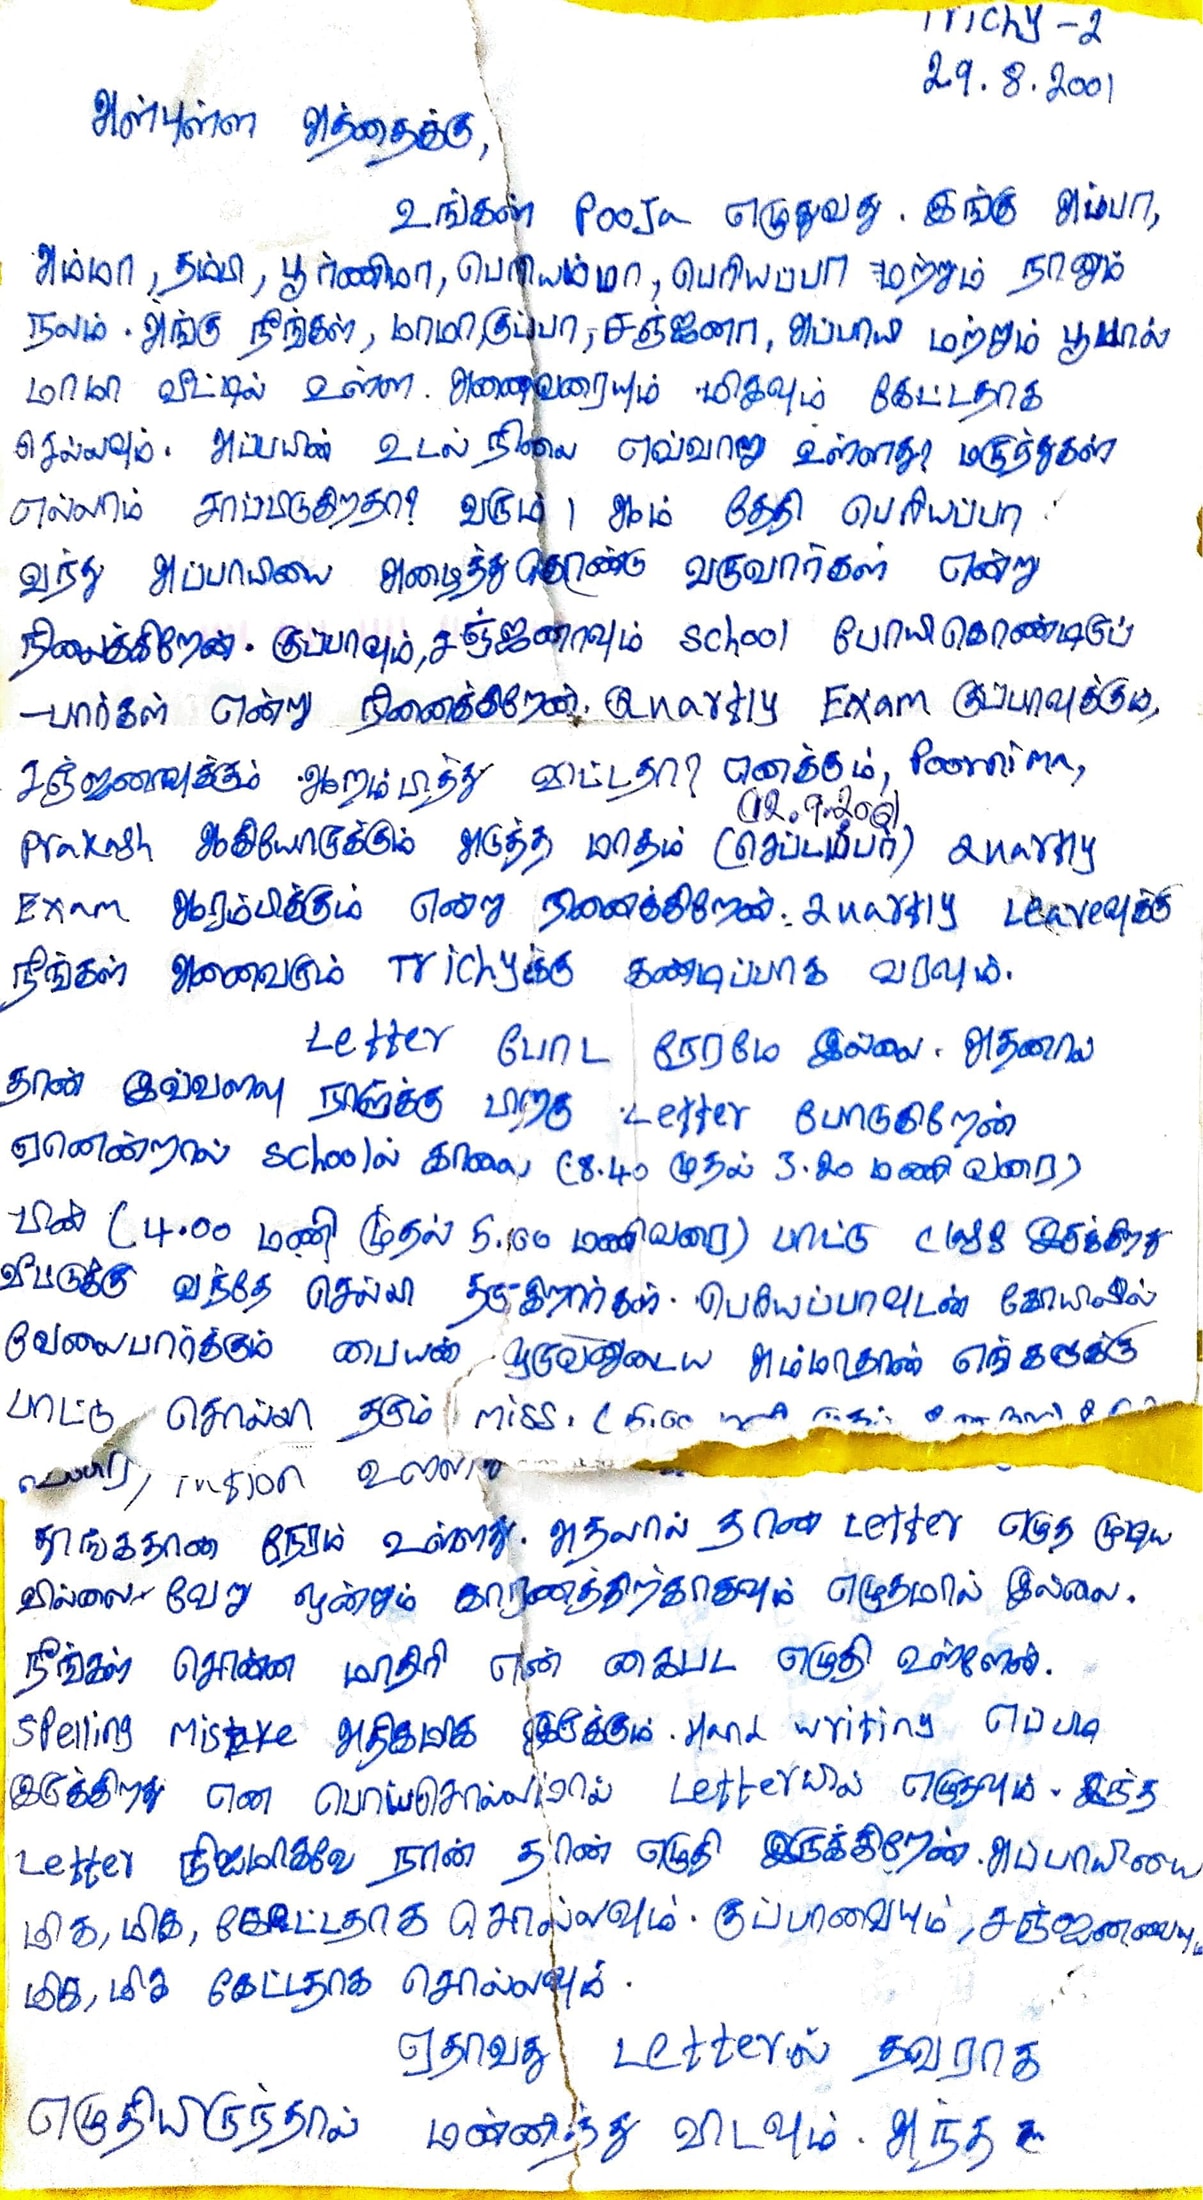 Trichy - 2
29.8.2001
அன்புள்ள அத்தைக்கு,
உங்கள் Pooja எழுதுவது. இங்கு அப்பா,
அம்மா, தம்பி, பூர்ணிமா, பெரியம்மா, பெரியப்பா மற்றும் நானும்
நலம். அங்கு நீங்கள், மாமா, குப்பா, சஞ்ஜனா, அப்பாயி மற்றும் பூபால்
மாமா வீட்டில் உள்ள அனைவரையும் மிகவும் கேட்டதாக
செல்லவும். அப்பயின் உடல் நிலை எவ்வாறு உள்ளது? மருந்துகள்
எல்லாம் சாப்படுகிறதா? வரும் 1 ஆம் தேதி பெரியப்பா
வந்து அப்பாயியை அழைத்து கொண்டு வருவார்கள் என்று
நினைக்கிறேன். குப்பாவும், சஞ்ஜனாவும் School போயிகொண்டிருப்
-பார்கள் என்று நினைக்கிறேன். Quartly Exam குப்பாவுக்கும்,
சஞ்ஜனாவுக்கும் ஆரம்பித்து விட்டதா? எனக்கும், Poornima,
(12.9.2001)
Prakash ஆகியோருக்கும் அடுத்த மாதம் (செப்டம்பர்) Quartly
Exam ஆரம்பிக்கும் என்று நினைக்கிறேன். Quartly Leaveவுக்கு
நீங்கள் அனைவரும் Trichyக்கு கண்டிப்பாக வரவும்.
Letter போட நேரமே இல்லை. அதனால்
தான் இவ்வளவு நாளுக்கு பிறகு Letter போடுகிறேன்
ஏனென்றால் Schoolல் காலை (8.40 முதல் 3.20 மணி வரை)
பின் (4.00 மணி முதல் 5.00 மணிவரை) பாட்டு class இருக்கிறது
வீட்டுக்கு வந்தே செல்லி தருகிறார்கள். பெரியப்பாவுடன் கோயிலில்
வேலைபார்க்கும் பையன் ஒருவனுடைய அம்மாதான் எங்களுக்கு
பாட்டு சொல்லி தரும் miss. (5.00
வரை) tution உள்ளது
தூங்கதான் நேரம் உள்ளது. அதனால் தான் Letter எழுத முடிய
வில்லை வேறு ஒன்றும் காரணத்திற்காகவும் எழுதமால் இல்லை.
நீங்கள் சொன்ன மாதிரி என் கைபட எழுதி உள்ளேன்.
Spelling mistake அதிகமாக இருக்கும். Hand writing எப்படி
இருக்கிறது என பொய்சொல்லாமால் Letterயில் எழுதவும். இந்த
Letter நிஜமாகவே நான் தான் எழுதி இருக்கிறேன். அப்பாயியை
மிக, மிக, கேட்டதாக சொல்லவும். குப்பாவையும், சஞ்ஜனாவையும்
மிக, மிக கேட்டதாக சொல்லவும்.
ஏதாவது Letterல் தவராக
எழுதியிருந்தால் மன்னித்து விடவும். அந்த